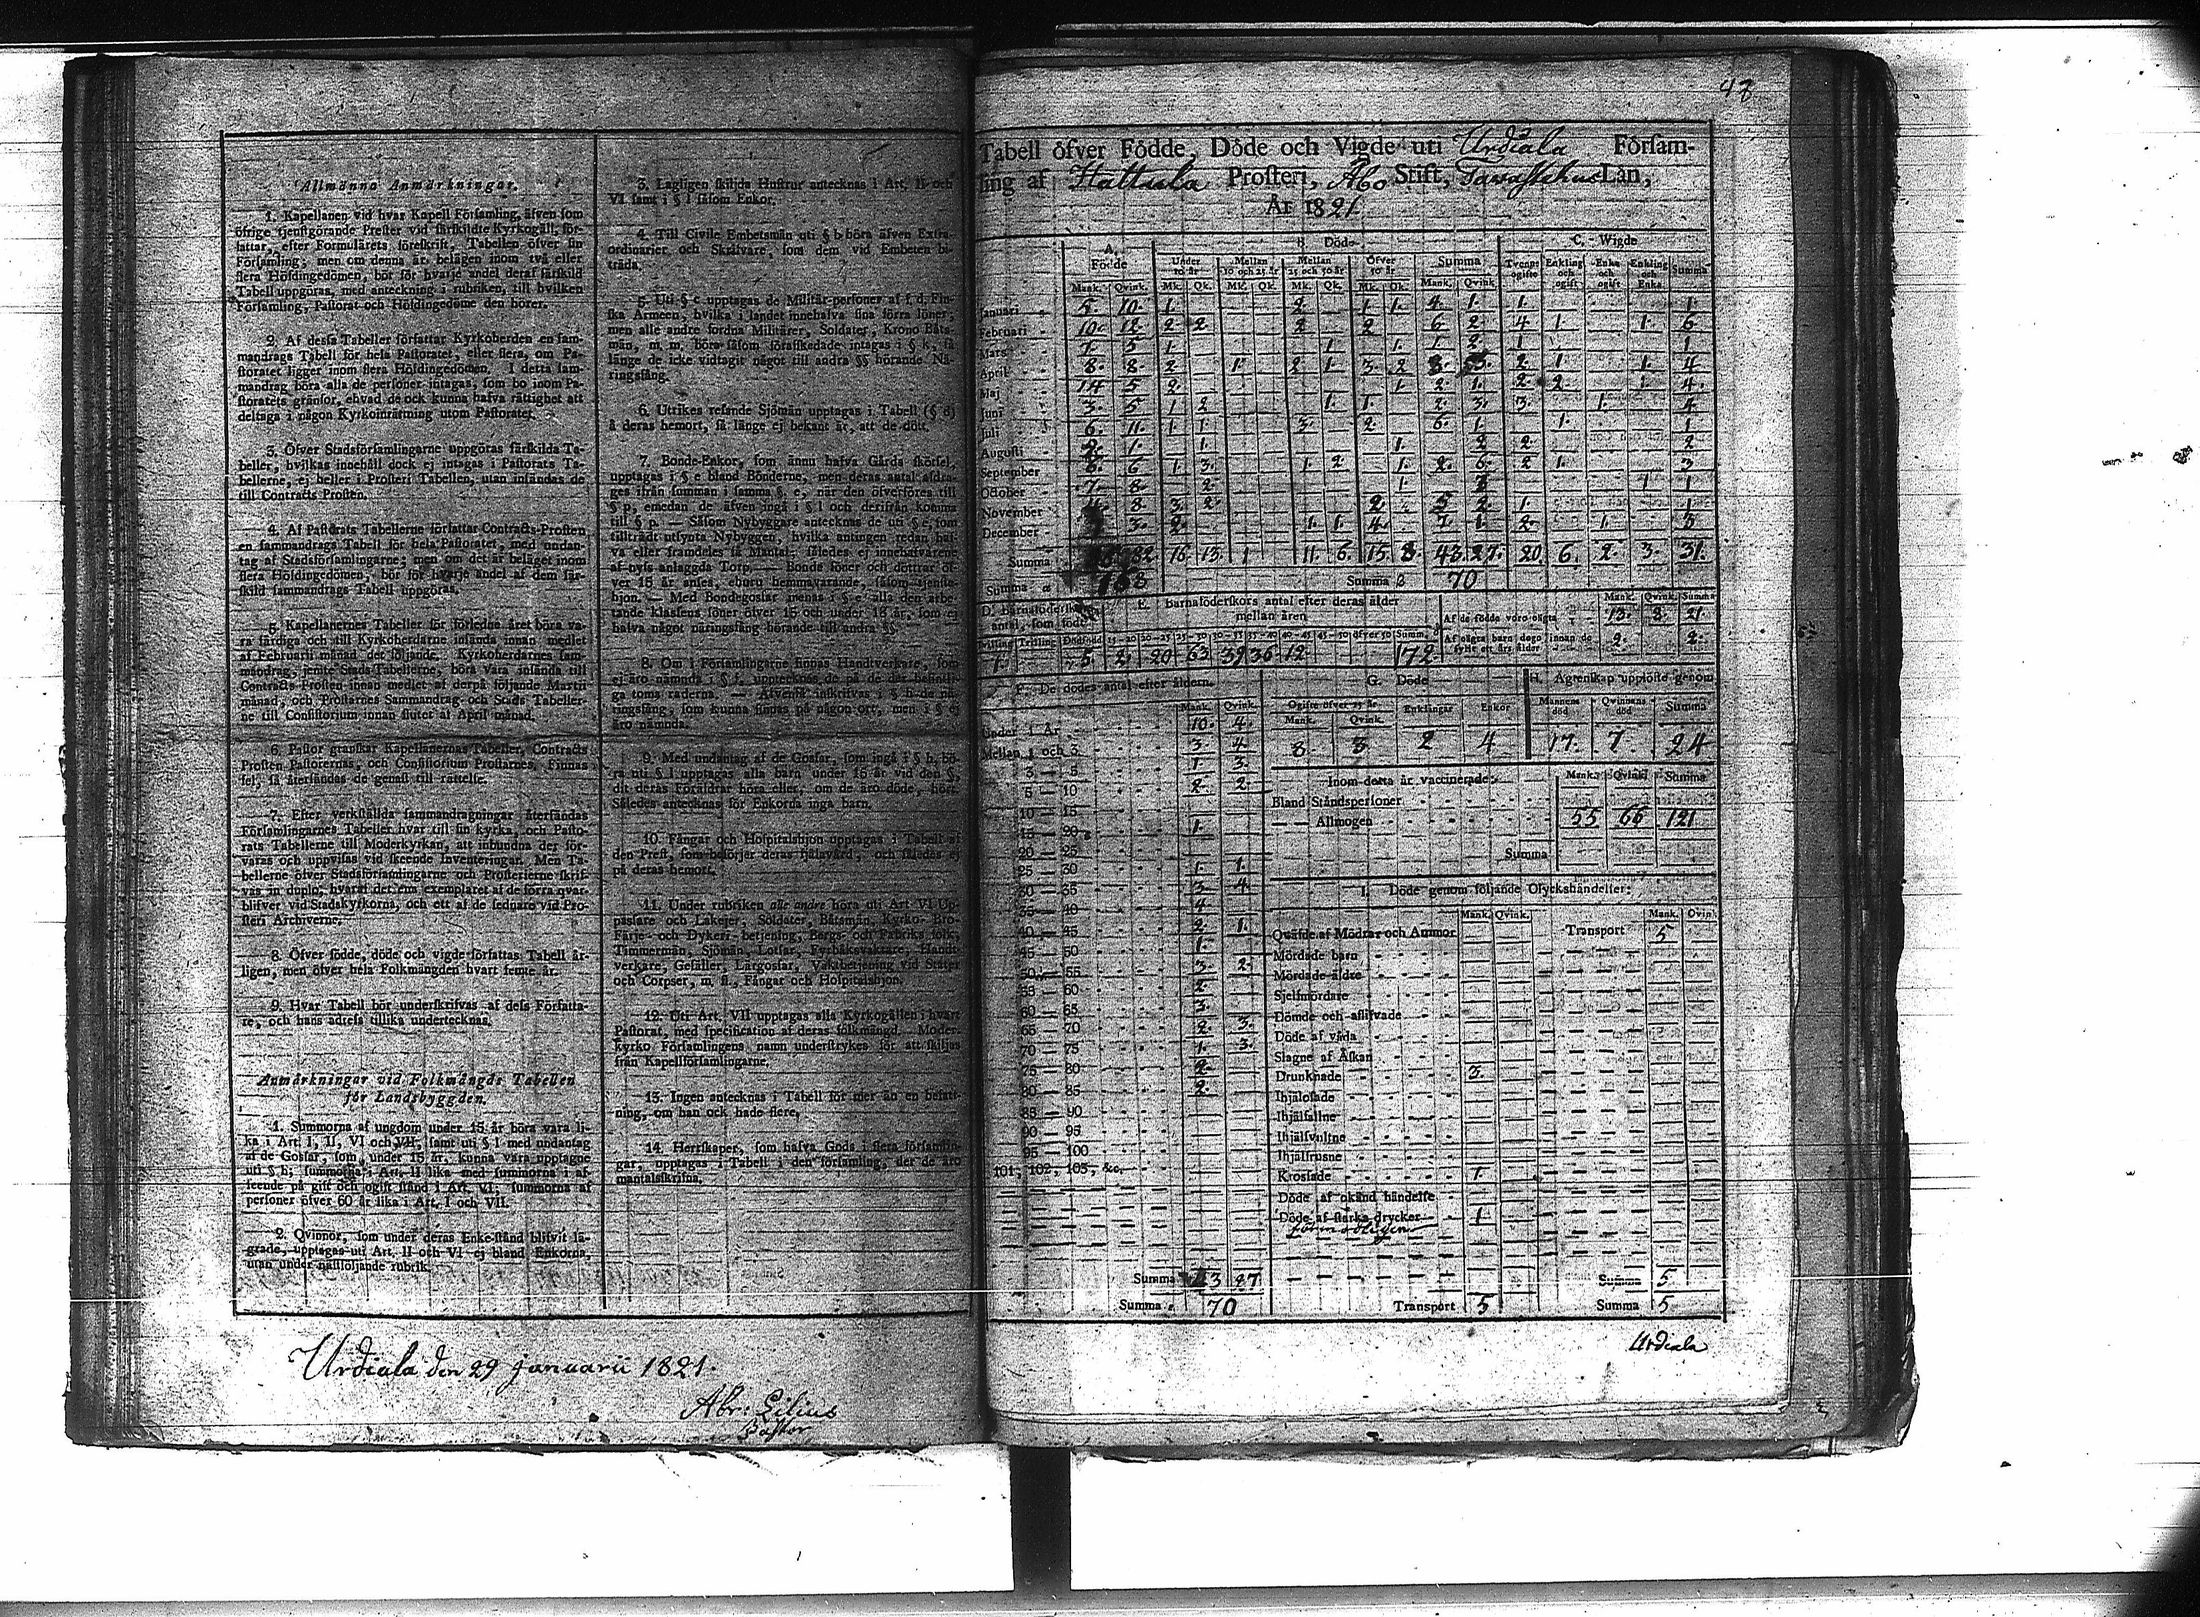 Allmänna Anmärkningar.
1. Kapellanen vid hvar Kapell Församling, äfven som
öfrige tjenstgörande Prester vid särskildte Kyrkogäll, för-
fattar, efter Formulärets föreskrift, Tabellen öfver sin
Församling; men om denna är belägen inom två eller
flera Höfdingedömen, bör för hvarje andel deraf särskild
Tabell uppgöras, med anteckning i rubriken, till hvilken
Församling, Pastorat och Höfdingedöme den hörer.
2. Af dessa Tabeller författar Kyrkoherden en sam-
mandrags Tabell för hela Pastoratet, eller flera, om Pa-
storatet ligger inom flera Höfdingedömen. I detta sam-
mandrag böra alla de personer intagas, som bo inom Pa-
storatets gränsor, ehvad de ock kunna hafva rättighet att
deltaga i någon Kyrkoinrättning utom Pastoratet.
3. Öfver Stadsförsamlingarne uppgöras särskilda Ta-
beller, hvilkas innehåll dock ej intages i Pastorats Ta-
bellerne, ej heller i Prosteri Tabellen, utan insändas de
till Contracts Prosten.
4. Af Pastorats Tabellerne författar Contracts-Prosten
en sammandrags Tabell för hela Pastoratet, med undan-
tag af Stadsförsamlingarne; men om det är beläget inom
flera Höfdingedömen, bör för hvarje andel af dem sär-
skild sammandrags Tabell uppgöras.
5. Kapellanernes Tabeller för förledne året böra va-
ra färdiga och till Kyrkoherdarne insända innan medlet
af Februarii månad det följande. Kyrkoherdarnes sam-
mandrag, jemte Stads-Tabellerne, böra vara insända till
Contracts-Prosten innan medlet af derpå följande Martii
månad, och Prostarnes Sammandrag och Stads Tabeller-
ne till Consistorium innan slutet af April månad.
6. Pastor granskar Kapellanernas Tabeller, Contracts
Prosten Pastorernas, och Consistorium Prostarnes. Finnas
fel, så återsändas de genast till rättelse.
7. Efter verkställda sammandragningar återsändas
Församlingarnes Tabeller hvar till sin kyrka, och Pasto-
rats Tabellerne till Moderkyrkan, att inbundna der för-
varas och uppvisas vid skeende Inventeringar. Men Ta-
bellerne öfver Stadsförsamlingarne och Prosterierne skrif-
vas in duplo, hvaraf det ena exemplaret af de förra qvar-
blifver vid Stadskyrkorna, och ett af de sednare vid Pro-
steri Archiverne.
8. Öfver födde, döde och vigde författas Tabell år-
ligen, men öfver hela Folkmängden hvart femte år.
9. Hvar Tabell bör underskrifvas af dess Författa-
re, och hans adress tillika undertecknas.
Anmärkningar vid Folkmängds Tabellen
för Landsbyggden.
1. Summorna af ungdom under 15 år böra vara li-
ka i Art. I, II, VI och VII, samt uti § l med undantag
af de Gossar, som, under 15 år, kunna vara upptagne
uti § h; summorna i Art. II lika med summorna i af-
seende på gift och ogift stånd i Art. VI; summorna af
personer öfver 60 år lika i Art. I och VII.
2. Qvinnor, som under deras Enke-stånd blifvit lä-
grade, upptagas uti Art. II och VI ej bland Enkorna,
utan under nästföljande rubrik.
3. Lagligen skiljda Hustrur antecknas i Art. II och
VI samt i § l såsom Enkor.
4. Till Civile Embetsmän uti § b böra äfven Extra-
ordinarier och Skrifvare, som dem vid Embeten bi-
träda.
5. Uti § c upptagas de Militär-personer af f. d. Fin-
ska Armeen, hvilka i landet innehafva sina förra löner;
men alle andre fordna Militärer, Soldater, Krono Båts-
män, m. m. böra såsom förafskedade intagas i § k, så
länge de icke vidtagit något till andra §§ hörande Nä-
ringsfång.
6. Utrikes resande Sjömän upptagas i Tabell (§ d)
å deras hemort, så länge ej bekant är, att de dött.
7. Bonde-Enkor, som ännu hafva Gårds skötsel,
upptagas i § e bland Bönderne, men deras antal afdra-
ges ifrån summan i samma § e, när den öfverföres till
§ p, emedan de äfven ingå i § l och derifrån komma
till § p. — Såsom Nybyggare antecknas de uti § e, som
tillträdt utsynta Nybyggen, hvilka antingen redan haf-
va eller framdeles få Mantal; således ej innehafvarene
af nyss anlaggda Torp. — Bonde söner och döttrar öf-
ver 15 år anses, ehuru hemmavarande, såsom tjenste-
hjon. — Med Bondegossar menas i § e alla den arbe-
tande klassens söner öfver 15 och under 18 år, som ej
hafva något näringsfång hörande till andra §§.
8. Om i Församlingarne finnas Handtverkare, som
ej äro nämnda i § f, upptecknas de på de der befintli-
ga toma raderna. — Äfvenså inskrifvas i § h de nä-
ringsfång, som kunna finnas på någon ort, men i § ej
äro nämnda.
9. Med undantag af de Gossar, som ingå i § h, bö-
ra uti § l upptagas alla barn under 15 år vid den §,
dit deras Föräldrar höra eller, om de äro döde, hört.
Således antecknas för Enkorna inga barn.
10. Fångar och Hospitalshjon upptagas i Tabell af
den Prest, som besörjer deras själavård, och således ej
på deras hemort.
11. Under rubriken alle andre höra uti Art. VI Up-
passare och Lakejer, Soldater, Båtsmän, Kyrko- Bro-
Färje- och Dykeri- betjening, Bergs- och Fabriks folk,
Timmermän, Sjömän, Lotsar, Fyrbåksvaktare, Handt-
verkare, Gesäller, Lärgossar, Vaktbetjening vid Stater
och Corpser, m. fl., Fångar och Hospitalshjon.
12. Uti Art. VII upptagas alla Kyrkogällen i hvart
Pastorat, med specification af deras folkmängd. Moder-
kyrko Församlingens namn understrykes för att skiljas
från Kapellförsamlingarne.
13. Ingen antecknas i Tabell för mer än en befatt-
ning, om han ock hade flere.
14. Herrskaper, som hafva Gods i flera församlin-
gar, upptagas i Tabell i den församling, der de äro
mantalsskrifna.
Urdiala den 29 Januarii 1821.
Abr: Lilius
Pastor
Tabell öfver Födde, Döde och Vigde uti Urdiala Försam-
ling af Hattula Prosteri, Åbo Stift, Tavastehus Län,
År 1821.
A. Födde B. Döde C. Wigde
Under 10 år Mellan 10 och 25 år Mellan 25 och 50 år Öfver 50 år Summa Tvenne ogifte Enkling och ogift Enka och ogift Enkling och Enka Summa
Mank. Qvink. Mk. Qk. Mk. Qk. Mk. Qk. Mk. Qk. Mank. Qvink.
Januari 5. 10. 1. 2 1 1. 4. 1. 1. 1.
Februari 10. 12. 2 2 2 2 6 2 4 1. 1. 6
Mars 5 1. 1 1. 1. 2 1 1
April 8. 8 2 1. 2 1. 3. 2 2. 1 1. 4
Maj 14 5 2. 1. 2. 1. 2. 2 1. 4.
Juni 3. 5 1. 2 1. 1. 2. 3. 3. 1. 4
Juli 6. 11. 1. 1. 3. 2. 6. 1. 1. 1
Augusti 1. 1. 1. 2 2. 2
September 6 1. 3. 1. 2. 1. 2. 6. 2 1. 3
October 7 8 2. 1. 1 1
November 8 3. 2. 2. 5 2. 1. 1
December 3. 2. 1. 1. 4. 7. 1. 2. 1. 3
Summa 82 16. 13. 1 11. 6. 15. 8 43. 27. 20. 6. 2. 3. 31.
Summa Summa 70
D. Barnsföderskors antal, som födt E. Barnsföderskors antal efter deras ålder mellan åren
Tvilling Trilling Dödfödd 15—20 20—25 25—30 30—35 35—40 40—45 45—50 öfver 50 Summ.
1. 5. 2. 20 63 39 36. 12. 172.
Mank. Qvink. Summa
Af de födde voro oägta 13. 8. 21.
Af oägta barn dogo innan de fyllt ett års ålder 2. 2.
F. De dödes antal efter åldern.
Mank. Qvink.
Under 1 År 10. 4.
Mellan 1 och 3 3. 4
3 — 5 1 3.
5 — 10 2. 2
10 — 15
15 — 20 1.
20 — 25
25 — 30 1. 1.
30 — 35 3. 4
35 — 40 4.
40 — 45 2. 1.
45 — 50 1.
50 — 55 3. 2.
55 — 60 2
60 — 65 3.
65 — 70 2. 3.
70 — 75 1. 3.
75 — 80 2.
80 — 85 2.
85 — 90
90 — 95
95 — 100
101, 102, 103, &c.
Summa 43 27
Summa 70
G. Döde
Ogifte öfver 15 år Enklingar Enkor
Mank. Qvink.
8. 3. 2 4
H. Ägtenskap upplöste genom
Mannens död Qvinnans död Summa
17. 7. 24
Inom detta år vaccinerade: Mank. Qvink. Summa
Bland Ståndspersoner
— — Allmogen 55 66 121
Summa
I. Döde genom följande Olyckshändelser:
Mank. Qvink. Mank. Qvin.
Qväfde af Mödrar och Ammor Transport 5
Mördade barn
Mördade äldre
Sjelfmördare
Dömde och aflifvade
Döde af våda
Slagne af Åskan
Drunknade 3.
Ihjälosade
Ihjälfallne
Ihjälsvultne
Ihjälfrusne
Krossade 1.
Döde af okänd händelse
Döde af starka drycker 1.
Summa 5
Transport 5 Summa 5
Urdiala